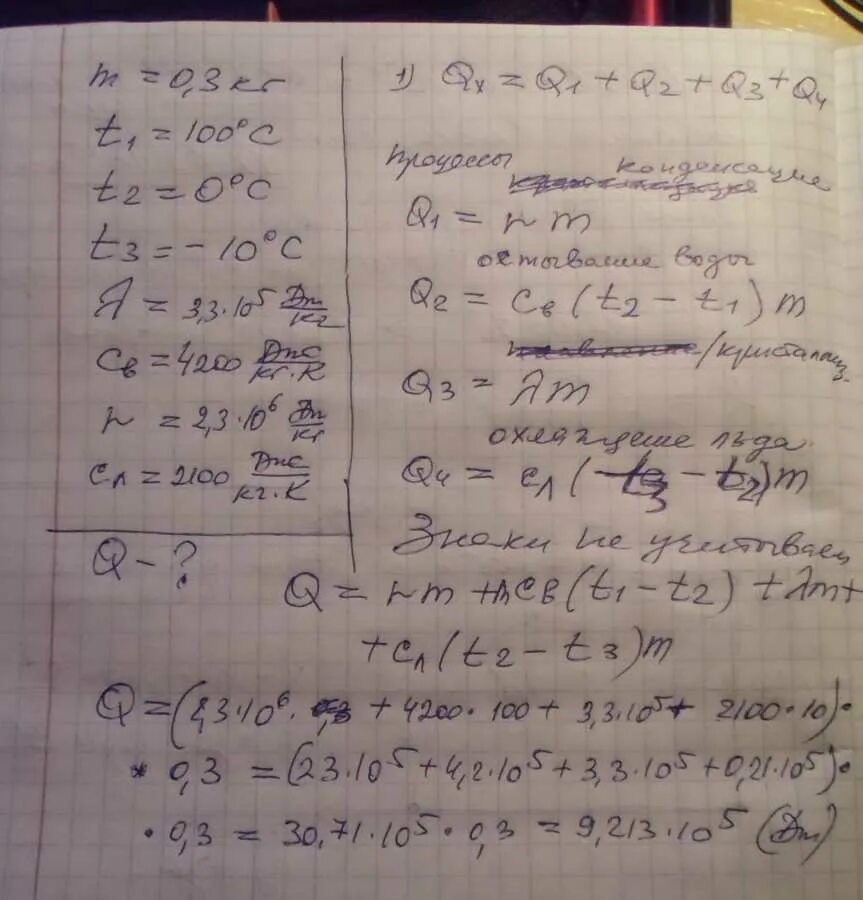 m = 0,3 кг
t₁ = 100°C
t₂ = 0°C
t₃ = - 10°C
λ = 3,3·10⁵ Дж/кг
Cв = 4200 Дж/кг·К
r = 2,3·10⁶ Дж/кг
Cл = 2100 Дж/кг·К
Q - ?
1) Qx = Q1 + Q2 + Q3 + Q4
Процессы
конденсация
Q1 = r m
остывание воды
Q2 = Cв (t2 - t1) m
/кристаллиз.
Q3 = λm
охлаждение льда
Q4 = Cл (t3 - t2) m
Знаки не учитываем
Q = rm + mCв (t1 - t2) + λm +
+ Cл (t2 - t3) m
Q = (2,3·10⁶ + 4200·100 + 3,3·10⁵ + 2100·10)·
* 0,3 = (23·10⁵ + 4,2·10⁵ + 3,3·10⁵ + 0,21·10⁵)·
· 0,3 = 30,71·10⁵ · 0,3 = 9,213·10⁵ (Дж)